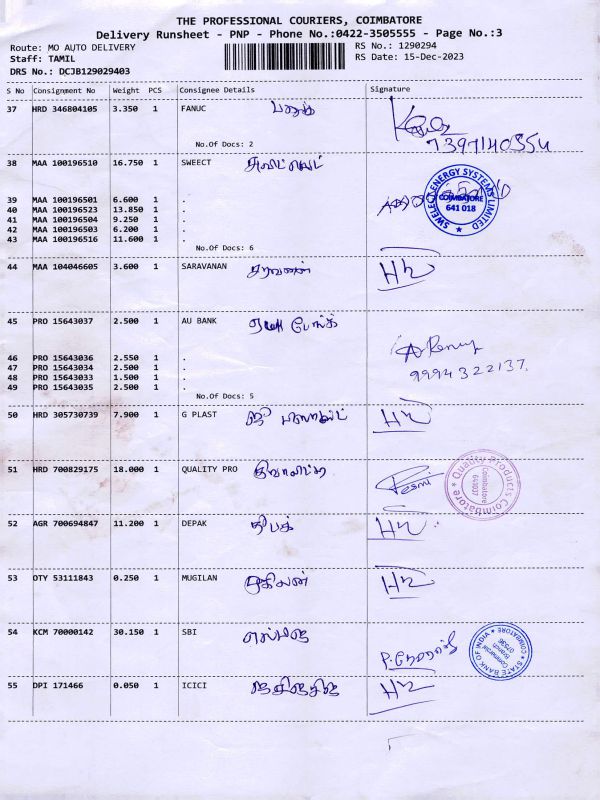 THE PROFESSIONAL COURIERS, COIMBATORE
Delivery Runsheet - PNP - Phone No.:0422-3505555 - Page No.:3
Route: MO AUTO DELIVERY RS No.: 1290294
Staff: TAMIL RS Date: 15-Dec-2023
DRS No.: DCJB129029403
S No Consignment No Weight PCS Consignee Details Signature
37 HRD 346804105 3.350 1 FANUC
7397140354
No.Of Docs: 2
38 MAA 100196510 16.750 1 SWEECT
39 MAA 100196501 6.600 1 .
40 MAA 100196523 13.850 1 .
41 MAA 100196504 9.250 1 .
42 MAA 100196503 6.200 1 .
43 MAA 100196516 11.600 1 .
SWELECT ENERGY SYSTEMS LIMITED
COIMBATORE
641 018
No.Of Docs: 6
44 MAA 104046605 3.600 1 SARAVANAN சரவணன்
45 PRO 15643037 2.500 1 AU BANK
46 PRO 15643036 2.550 1 .
47 PRO 15643034 2.500 1 .
48 PRO 15643033 1.500 1 .
49 PRO 15643035 2.500 1 .
9994322137.
No.Of Docs: 5
50 HRD 305730739 7.900 1 G PLAST
51 HRD 700829175 18.000 1 QUALITY PRO
Quality Products Coimbatore
Coimbatore
52 AGR 700694847 11.200 1 DEPAK தீபக்
53 OTY 53111843 0.250 1 MUGILAN முகிலன்
54 KCM 70000142 30.150 1 SBI
STATE BANK OF INDIA
Commercial
Branch
07536
COIMBATORE
55 DPI 171466 0.050 1 ICICI